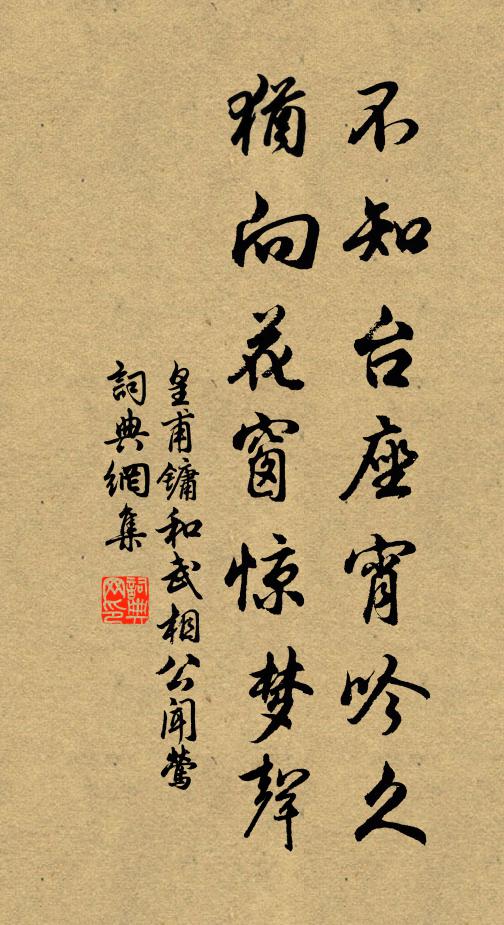 不知台座宵吟久
猶向花窗惊梦聲
皇甫鏞和武相公聞鶯
詞典網集
詞典网印